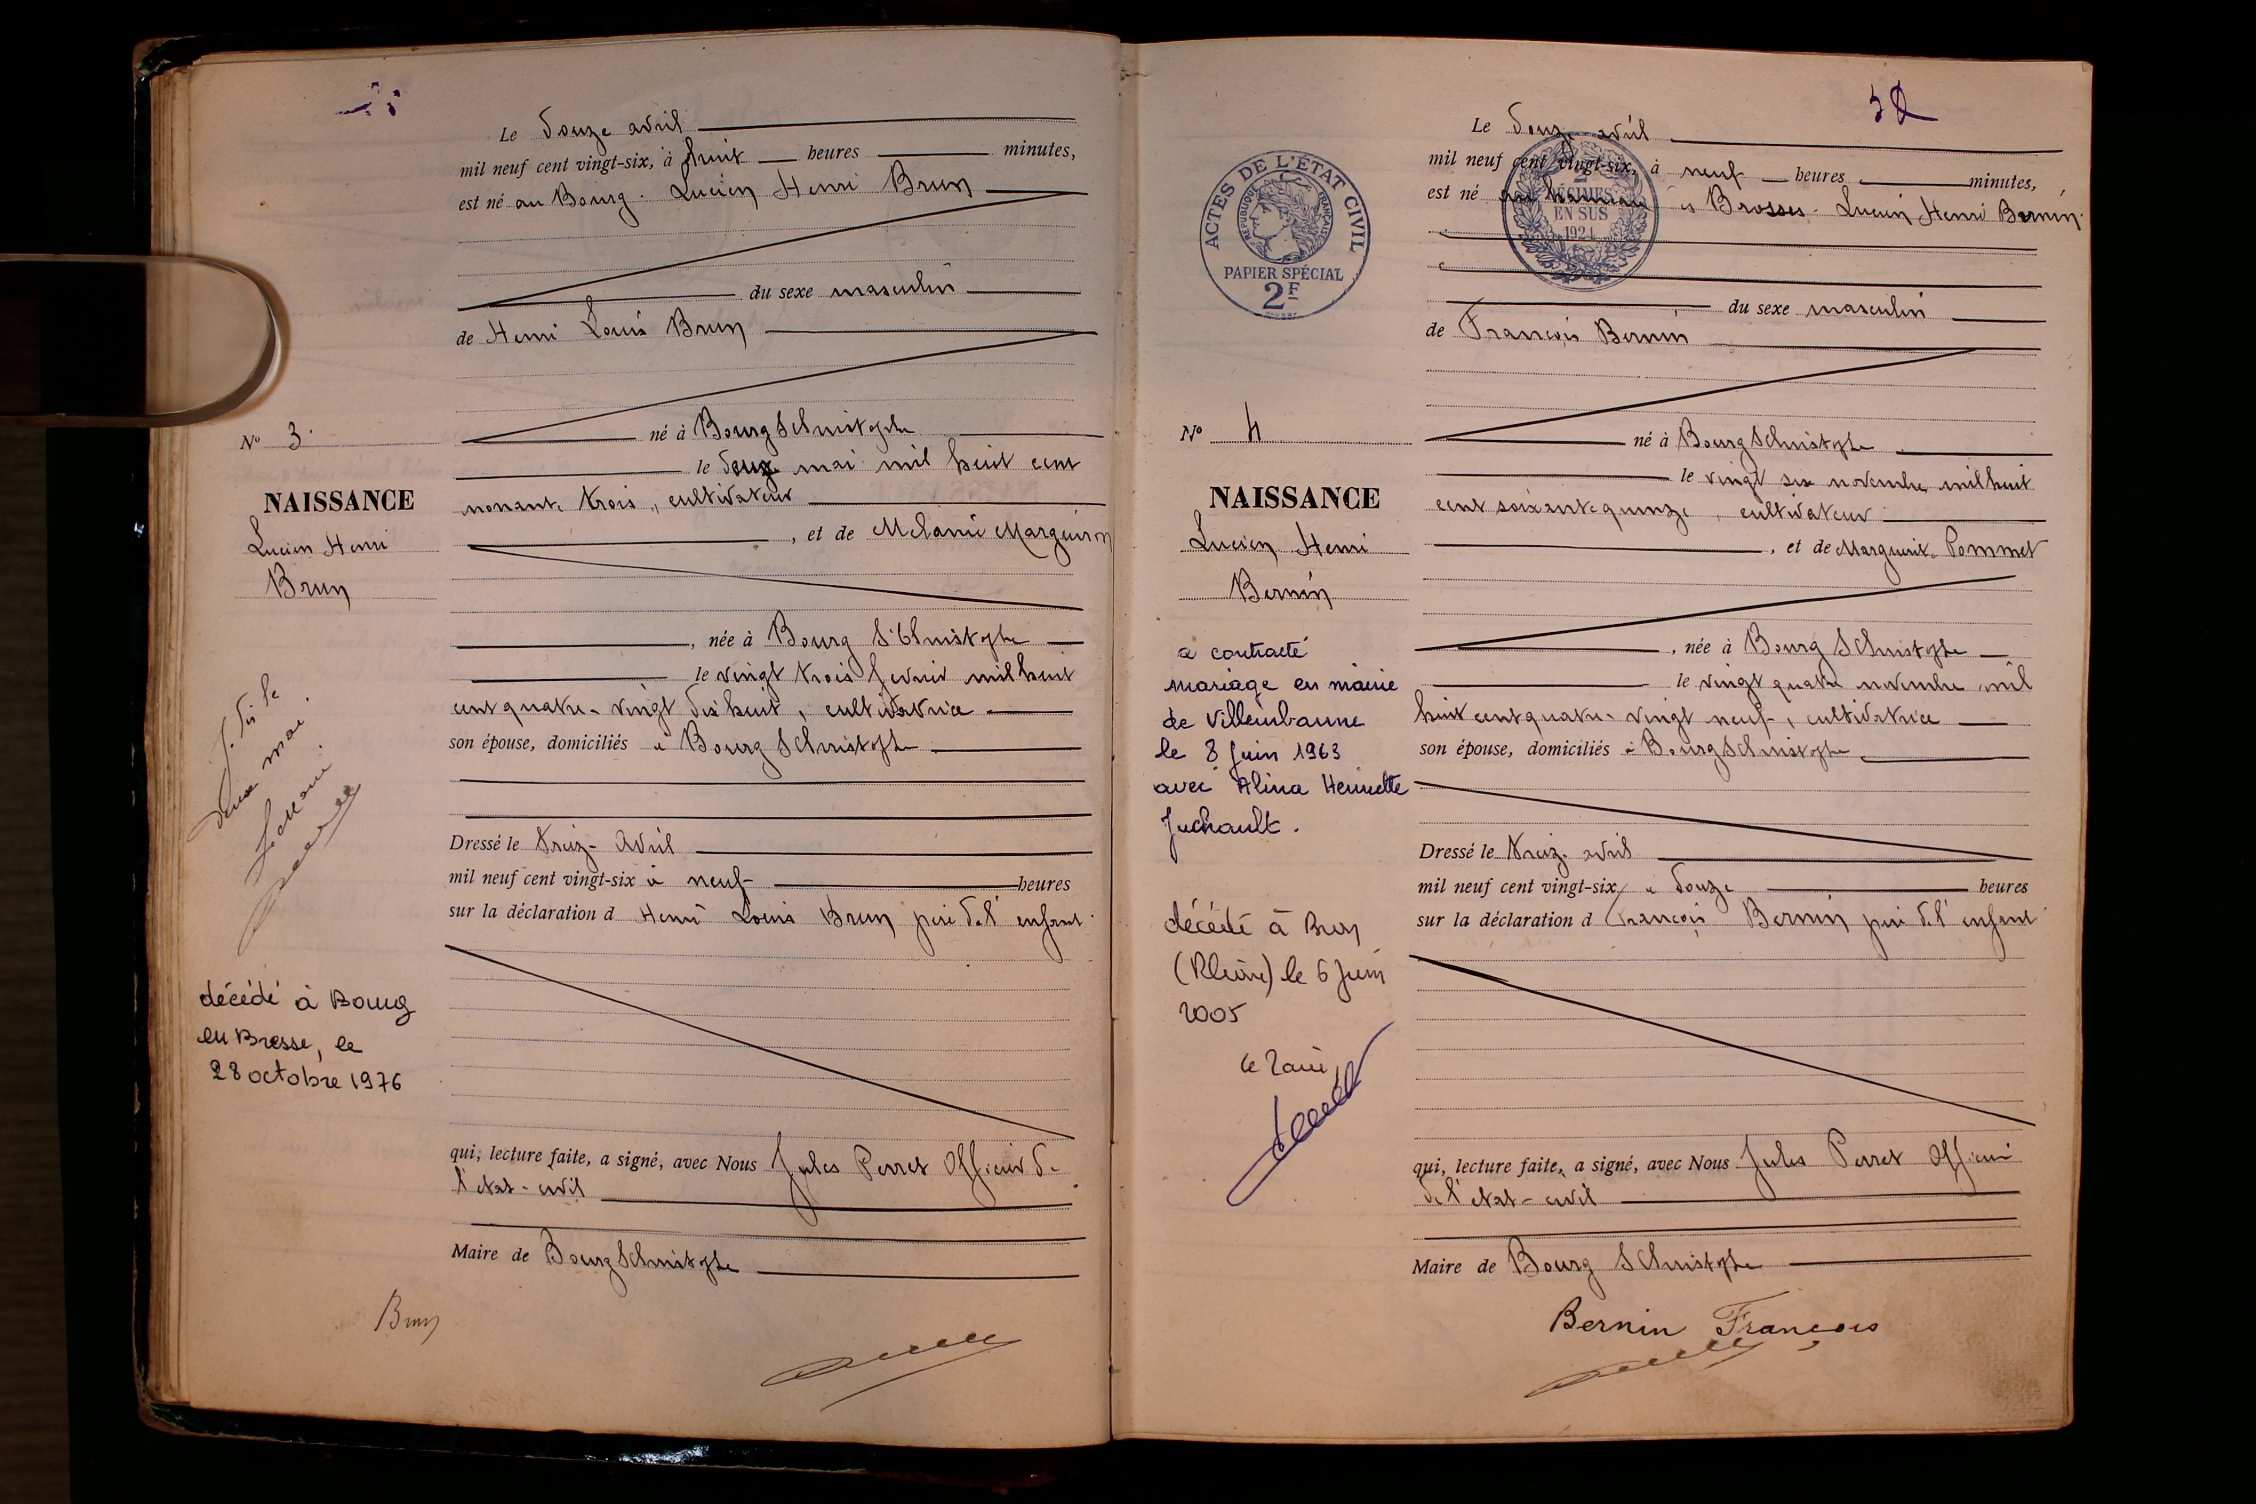 Le douze avril
mil neuf cent vingt-six, à huit heures minutes,
est né au Bourg. Lucien Henri Brun
du sexe masculin
de Henri Louis Brun
né à Bourg S Christophe
le douze mai mil huit cent
nonante trois, cultivateur
, et de Mélanie Marguiron
, née à Bourg S. Christophe
le vingt trois février mil huit
cent quatre-vingt dix huit, cultivatrice
son épouse, domiciliés à Bourg S Christophe
Dressé le treize Avril
mil neuf cent vingt-six à neuf heures
sur la déclaration d Henri Louis Brun père de l'enfant
qui, lecture faite, a signé, avec Nous Jules Perret Officier de
l'état-civil
Maire de Bourg S Christophe
Brun
N° 3.
NAISSANCE
Lucien Henri
Brun
deux mai
décédé à Bourg
en Bresse, le
28 octobre 1976
32
Le douze avril
mil neuf cent vingt-six, à neuf heures minutes,
est né au hameau es Brosses. Lucien Henri Bernin
du sexe masculin
de François Bernin
né à Bourg S Christophe
le vingt six novembre mil huit
cent soixante quinze, cultivateur
, et de Marguerite Pommet
, née à Bourg S Christophe
le vingt quatre novembre mil
huit cent quatre-vingt neuf, cultivatrice
son épouse, domiciliés à Bourg S Christophe
Dressé le treize avril
mil neuf cent vingt-six à douze heures
sur la déclaration d François Bernin père de l'enfant
qui, lecture faite, a signé, avec Nous Jules Perret Officier
de l'état-civil
Maire de Bourg S Christophe
Bernin François
ACTES DE L'ÉTAT CIVIL
RÉPUBLIQUE FRANÇAISE
PAPIER SPÉCIAL
2F
2
DÉCIMES
EN SUS
1924
N° 4
NAISSANCE
Lucien Henri
Bernin
a contracté
mariage en mairie
de Villeurbanne
le 8 juin 1963
avec Alina Henriette
Juchault.
décédé à Bron
(Rhône) le 6 Juin
2005
Le Maire